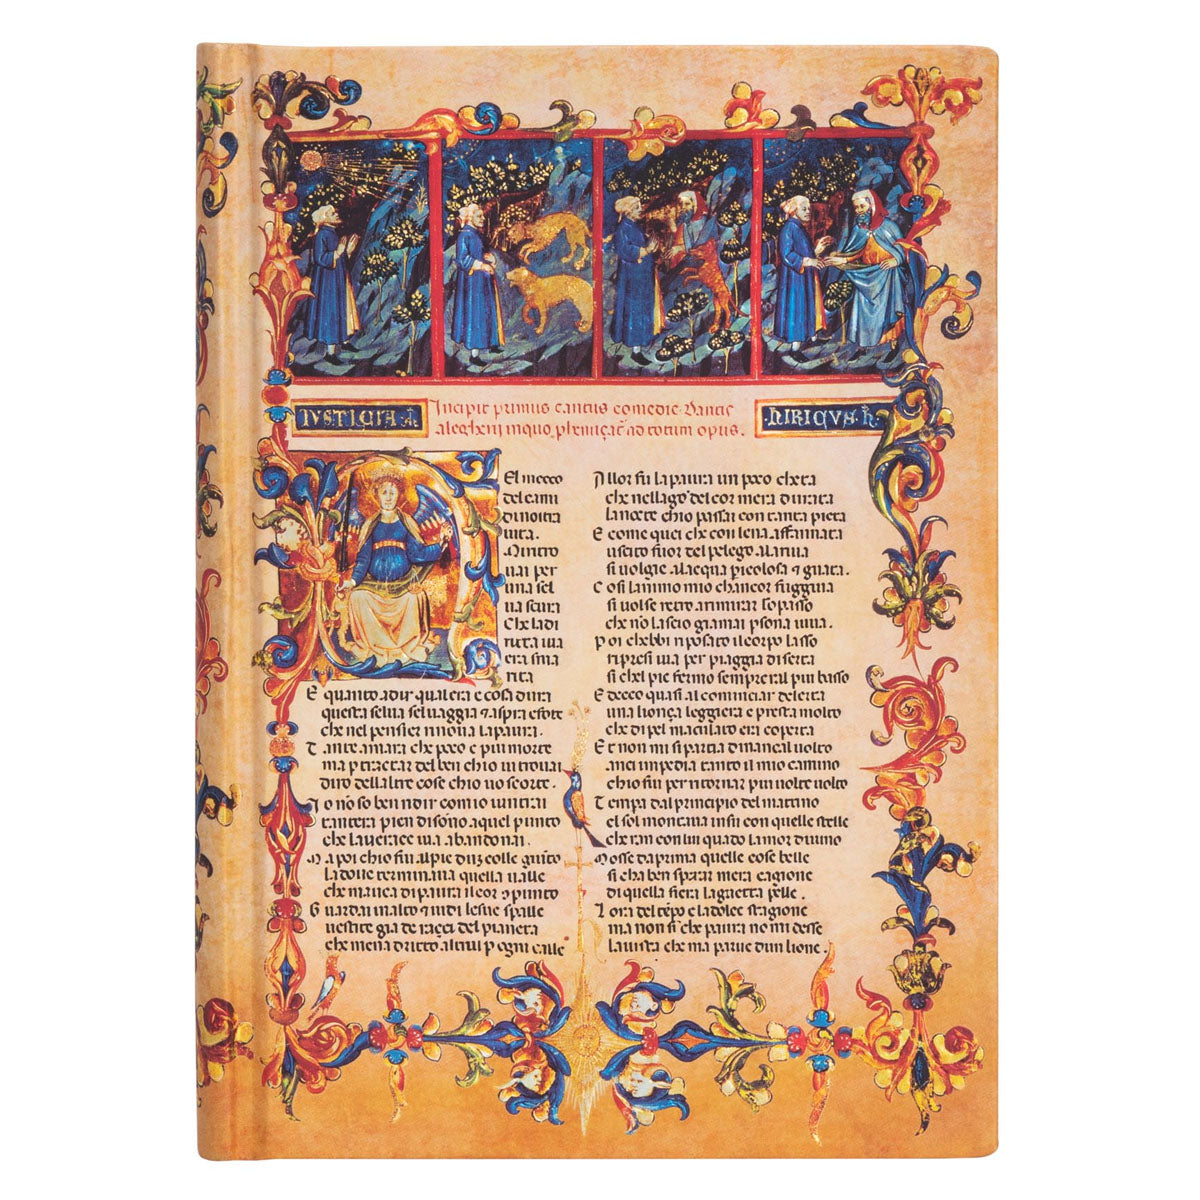 IVSTIÇIA
Incipit primus cantus comedie Dantis
alegherij inquo ad totum opus.
El meço
del cami
di nostra
uita.
Mi ritro
uai per
una sel
ua scura
Che la di
ritta uia
era sma
rita
E quanto adir qual era e cosa dura
questa selua seluaggia et aspra e forte
che nel pensier rinoua la paura.
T ante amara che poco e piu morte
ma per tractar del ben chio ui trouai
diro dellaltre cose chio uo scorte.
Io nõ so ben ridir comio uintrai
tantera pien di sonno aquel punto
che la uerace uia abandonai.
Ma poi chio fui alpie dun colle giunto
la doue terminaua quella ualle
che mauea di paura il cor punto
Guardai in alto et uidi lesue spalle
uestite gia de raggi del pianeta
che mena dritto altrui per ogni calle
Allor fu la paura un poco cheta
che nellago del cor mera durata
la nocte chio passai con tanta pieta
E come quei che con lena affannata
uscito fuor del pelego ala riua
si uolgie alacqua picolosa et guata.
Cosi lanimo mio chancor fuggiua
si uolse retro arimirar lo passo
che nõ lascio giamai psona uiua.
Poi chebbi riposato il corpo lasso
ripresi uia per piaggia diserta
si chel pie fermo sempre era il piu basso
Edecco quasi al cominciar delerta
una lionça leggiera e presta molto
che di pel maculato era coperta
Et non mi si partia dinançi al uolto
anci impedia tanto il mio camino
chio fui per ritornar piu uolte uolto
Tempa dal principio del mattino
el sol montaua insu con quelle stelle
cheran con lui quado lamor diuino
Mosse da prima quelle cose belle
si cha ben sperar mera cagione
di quella fiera la gaetta pelle.
Lora del tẽpo e la dolce stagione
ma non si che paura no mi desse
la uista che ma parue dun lione.